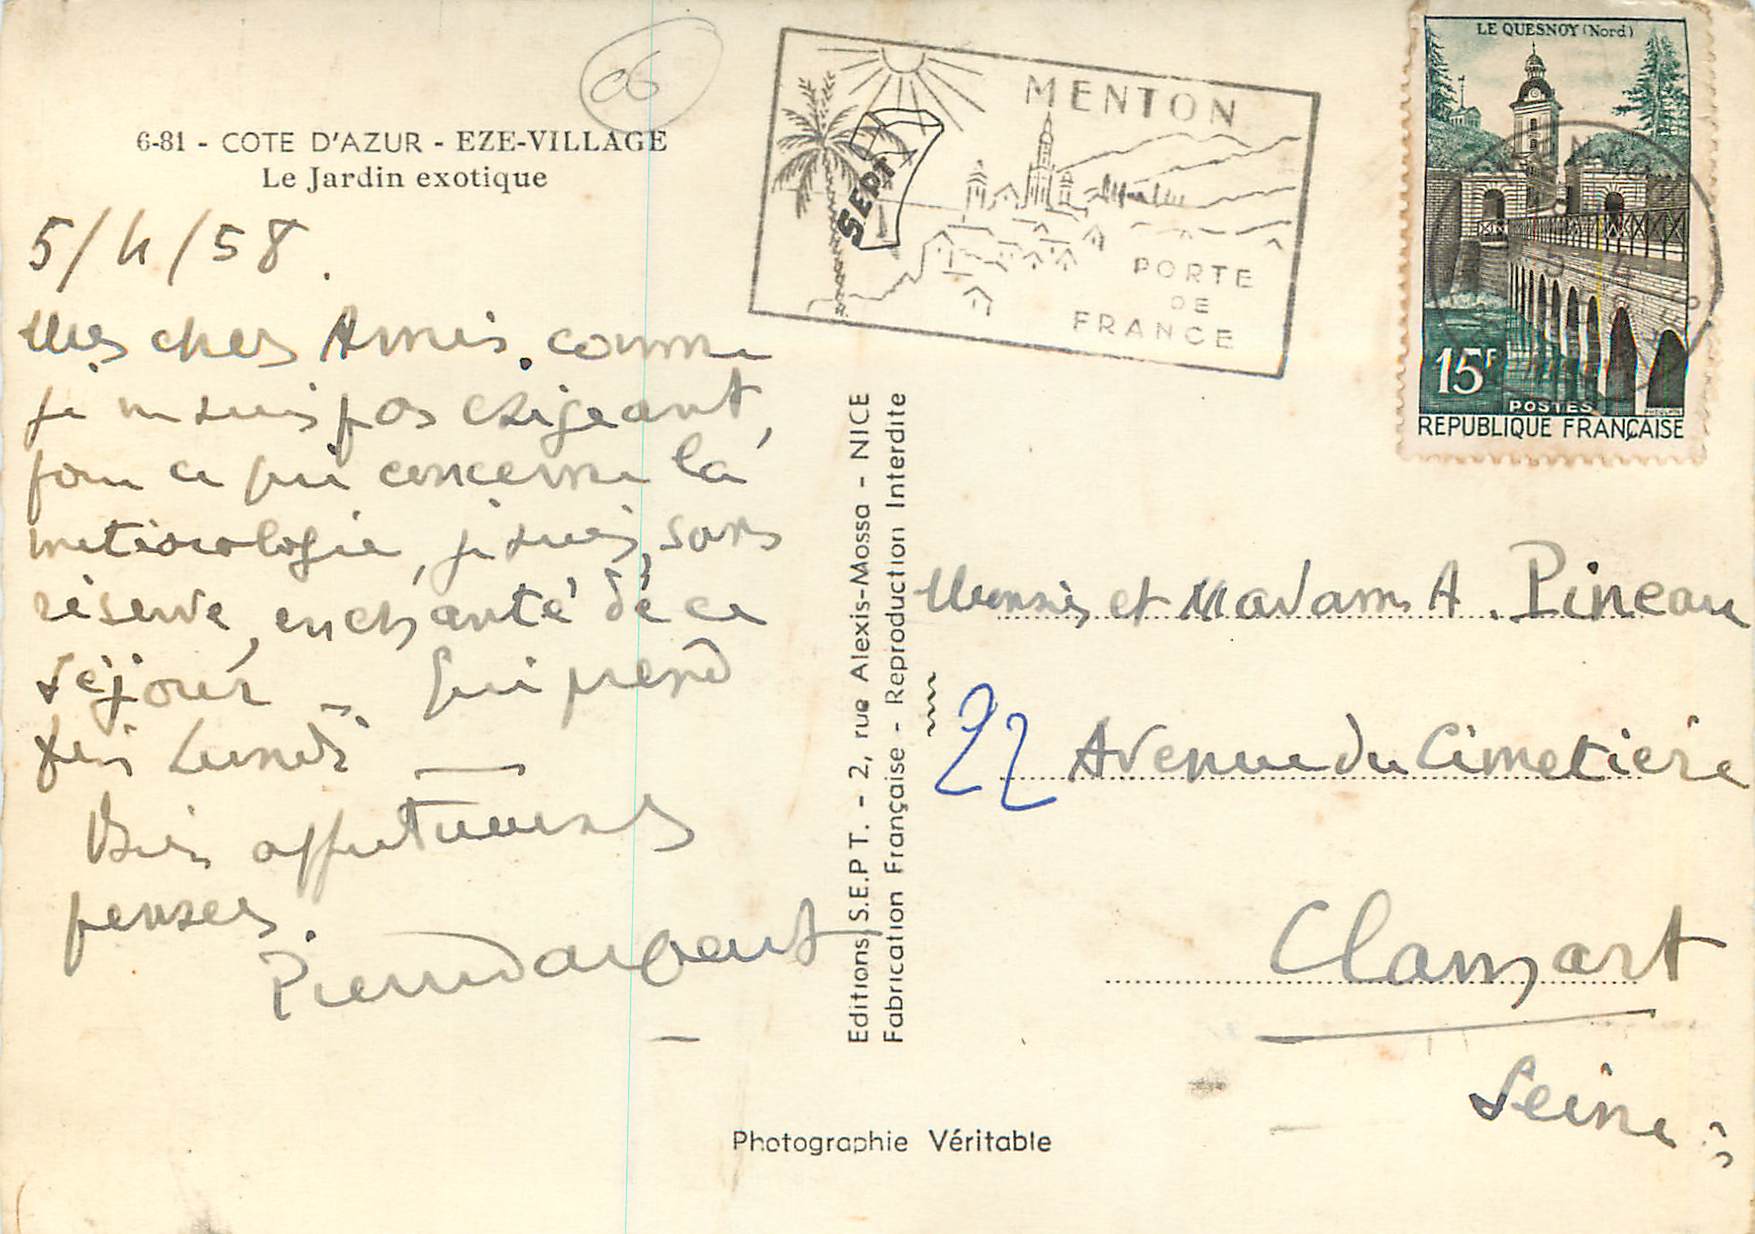 06
6-81 - COTE D'AZUR - EZE-VILLAGE
Le Jardin exotique
5/4/58.
Mes chers Amis. comme
je ne suis pas exigeant,
pour ce qui concerne la
météorologie, je suis, sans
réserve, enchanté de ce
séjour - qui prend
fin Lundi —
Bien affectueuses
pensées.
Pierre Dargent
SEPT
MENTON
PORTE
DE
FRANCE
LE QUESNOY (Nord)
15F
POSTES
REPUBLIQUE FRANÇAISE
Editions S.E.P.T. - 2, rue Alexis-Mossa - NICE
Fabrication Française - Reproduction Interdite
Monsieur et Madame A. Pineau
22 Avenue du Cimetière
Clamart
Seine
Photographie Véritable